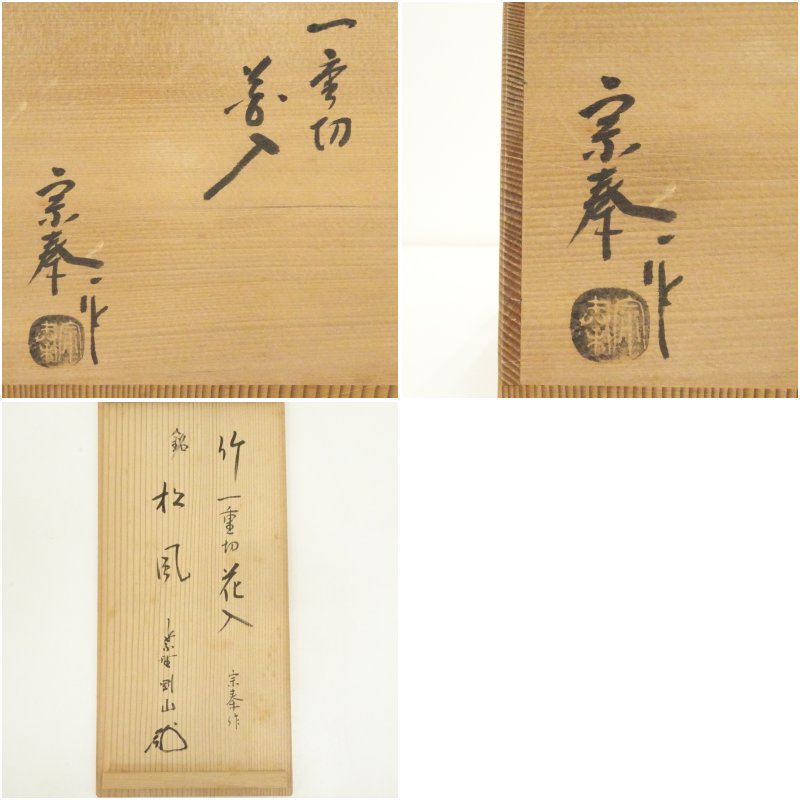 一重切
花入
宗奉
作
宗奉
作
竹一重切花入
宗奉作
銘
松風
紫野剛山